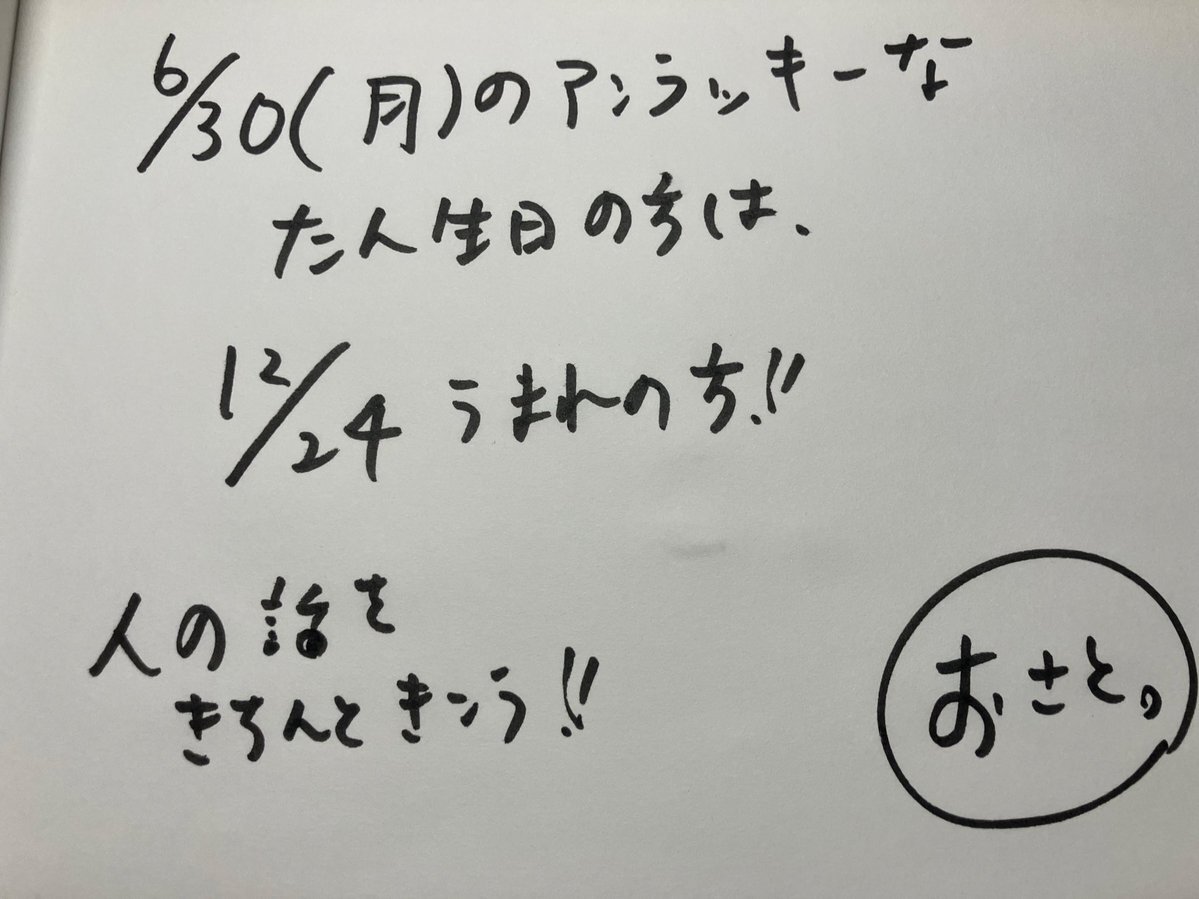 6/30(月)のアンラッキーな
たん生日の方は、
12/24 うまれの方!!
人の話を
きちんときこう!!
おさと。